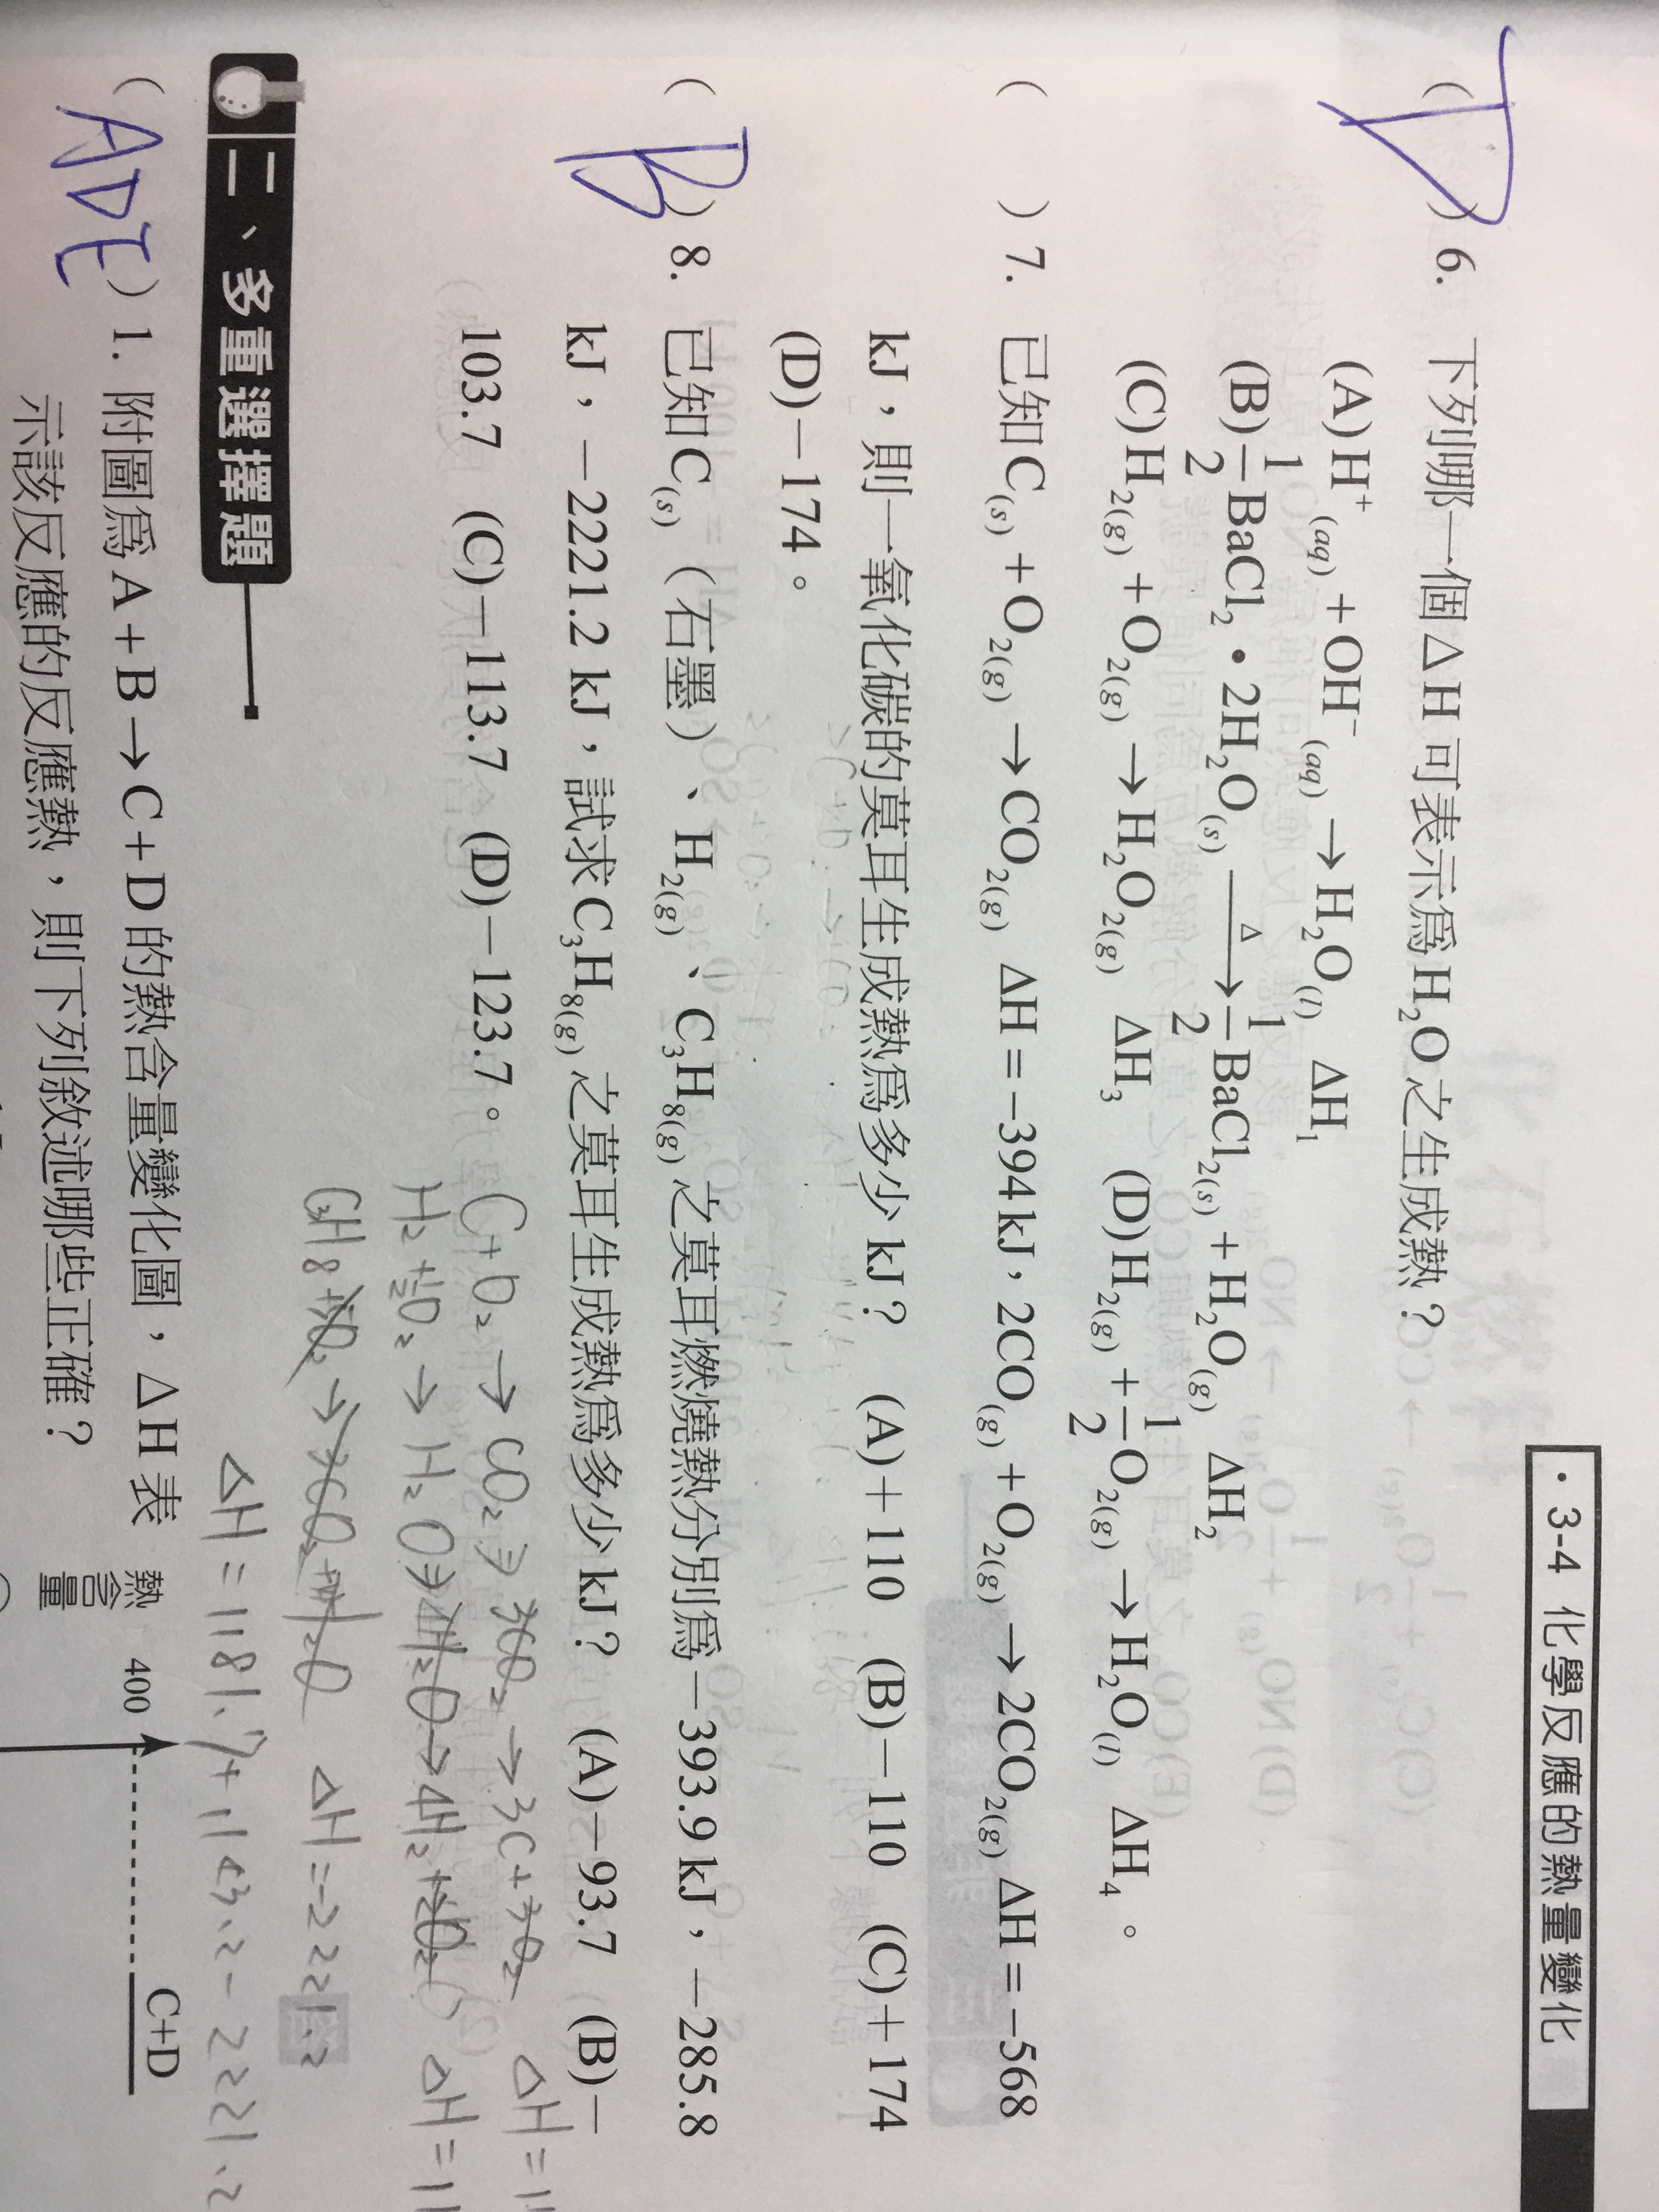 ·3-4 化學反應的熱量變化
D
( ) 6. 下列哪一個△H可表示爲H₂O之生成熱?
(A) H⁺(aq) + OH⁻(aq) → H₂O(l) ΔH₁
(B) 1/2 BaCl₂•2H₂O(s) —Δ→ 1/2 BaCl₂(s) + H₂O(g) ΔH₂
(C) H₂(g) + O₂(g) → H₂O₂(g) ΔH₃ (D) H₂(g) + 1/2 O₂(g) → H₂O(l) ΔH₄。
( ) 7. 已知C(s) + O₂(g) → CO₂(g) ΔH = −394 kJ,2CO(g) + O₂(g) → 2CO₂(g) ΔH = −568
kJ,則一氧化碳的莫耳生成熱爲多少 kJ? (A)+110 (B)−110 (C)+174
(D)−174。
B
( ) 8. 已知C(s)(石墨)、H₂(g)、C₃H₈(g)之莫耳燃燒熱分別爲−393.9 kJ,−285.8
kJ,−2221.2 kJ,試求C₃H₈(g)之莫耳生成熱爲多少 kJ? (A)−93.7 (B)−
103.7 (C)−113.7 (D)−123.7。
C+O₂ → CO₂ → 3C+3O₂ ΔH=11
H₂+½O₂ → H₂O → 4H₂+2O₂ ΔH=11
C₃H₈ ΔH=-2221.2
ΔH=1181.7+1143.2-2221.2
二、多重選擇題
ADE
( ) 1. 附圖爲A+B→C+D的熱含量變化圖,△H表
示該反應的反應熱,則下列敘述哪些正確?
熱含量
400
C+D